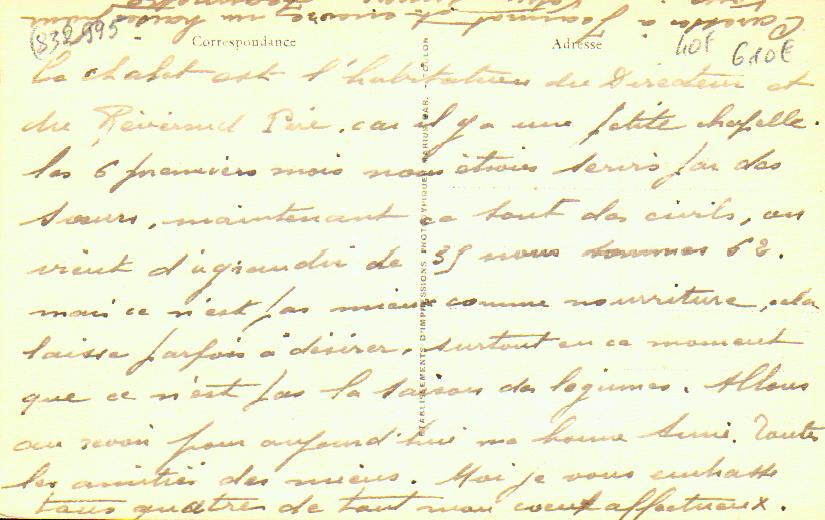 (832995
Correspondance
Adresse
40F 610€
Le chalet est l'habitation du Directeur et
du Révérend Père, car il y a une petite chapelle.
les 6 premiers mois nous étions servis par des
sœurs, maintenant ce sont des civils, on
vient d'agrandir de 35 nous sommes 62.
mais ce n'est pas mieux comme nourriture, cela
laisse parfois à désirer, surtout en ce moment
que ce n'est pas la saison des légumes. Allons
au revoir pour aujourd'hui ma bonne Amie. Toutes
les amitiés des miens. Moi je vous embrasse
tous quatres de tout mon cœur affectueux.
ETABLISSEMENTS D'IMPRESSIONS PHOTOTYPIQUES MARIUS BAR. - TOULON